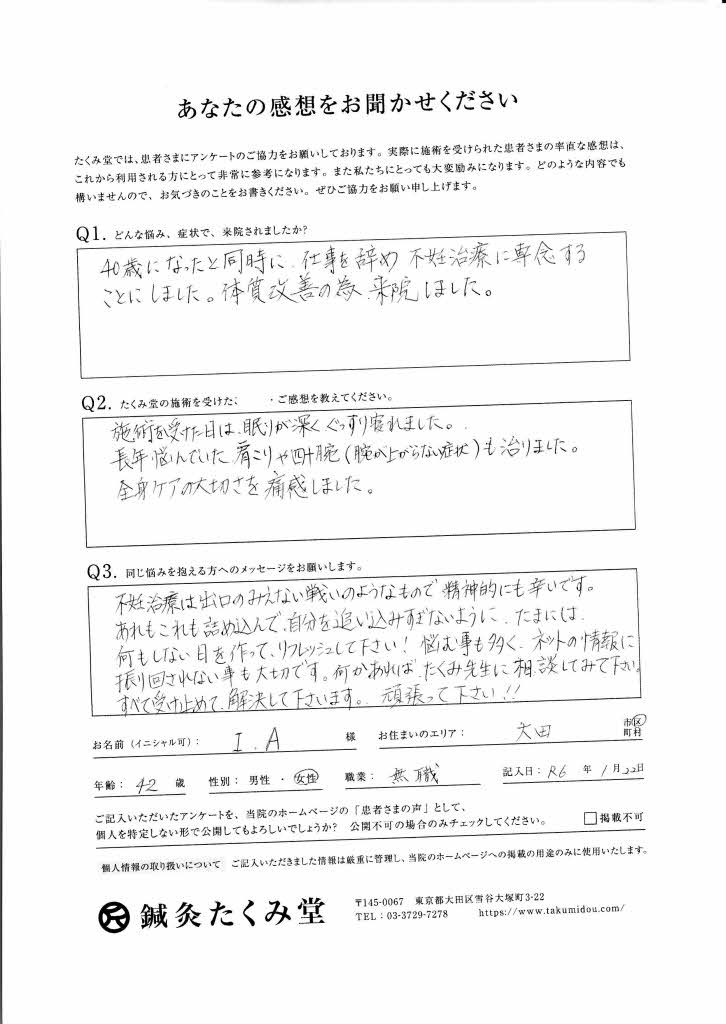 あなたの感想をお聞かせください
たくみ堂では、患者さまにアンケートのご協力をお願いしております。実際に施術を受けられた患者さまの率直な感想は、
これから利用される方にとって非常に参考になります。また私たちにとっても大変励みになります。どのような内容でも
構いませんので、お気づきのことをお書きください。ぜひご協力をお願い申し上げます。
Q1. どんな悩み、症状で、来院されましたか?
40歳になったと同時に、仕事を辞め 不妊治療に専念する
ことにしました。体質改善の為、来院しました。
Q2. たくみ堂の施術を受けた ・ご感想を教えてください。
施術を受けた日は、眠りが深くぐっすり寝れました。
長年悩んでいた肩こりや四十腕(腕が上がらない症状)も治りました。
全身ケアの大切さを痛感しました。
Q3. 同じ悩みを抱える方へのメッセージをお願いします。
不妊治療は出口のみえない戦いのようなもので精神的にも辛いです。
あれもこれも詰め込んで、自分を追い込みすぎないように、たまには、
何もしない日を作って、リフレッシュして下さい!悩む事も多く、ネットの情報に
振り回されない事も大切です。何かあれば、たくみ先生に相談してみて下さい。
すべて受け止めて、解決して下さいます。頑張って下さい!!
お名前(イニシャル可): I.A 様 お住まいのエリア: 大田 市区町村
年齢: 42 歳 性別: 男性 ・ 女性 職業: 無職 記入日: R6 年 1月22日
ご記入いただいたアンケートを、当院のホームページの「患者さまの声」として、
個人を特定しない形で公開してもよろしいでしょうか? 公開不可の場合のみチェックしてください。 □掲載不可
個人情報の取り扱いについて ご記入いただきました情報は厳重に管理し、当院のホームページへの掲載の用途のみに使用いたします。
鍼灸たくみ堂
〒145-0067 東京都大田区雪谷大塚町3-22
TEL:03-3729-7278 https://www.takumidou.com/